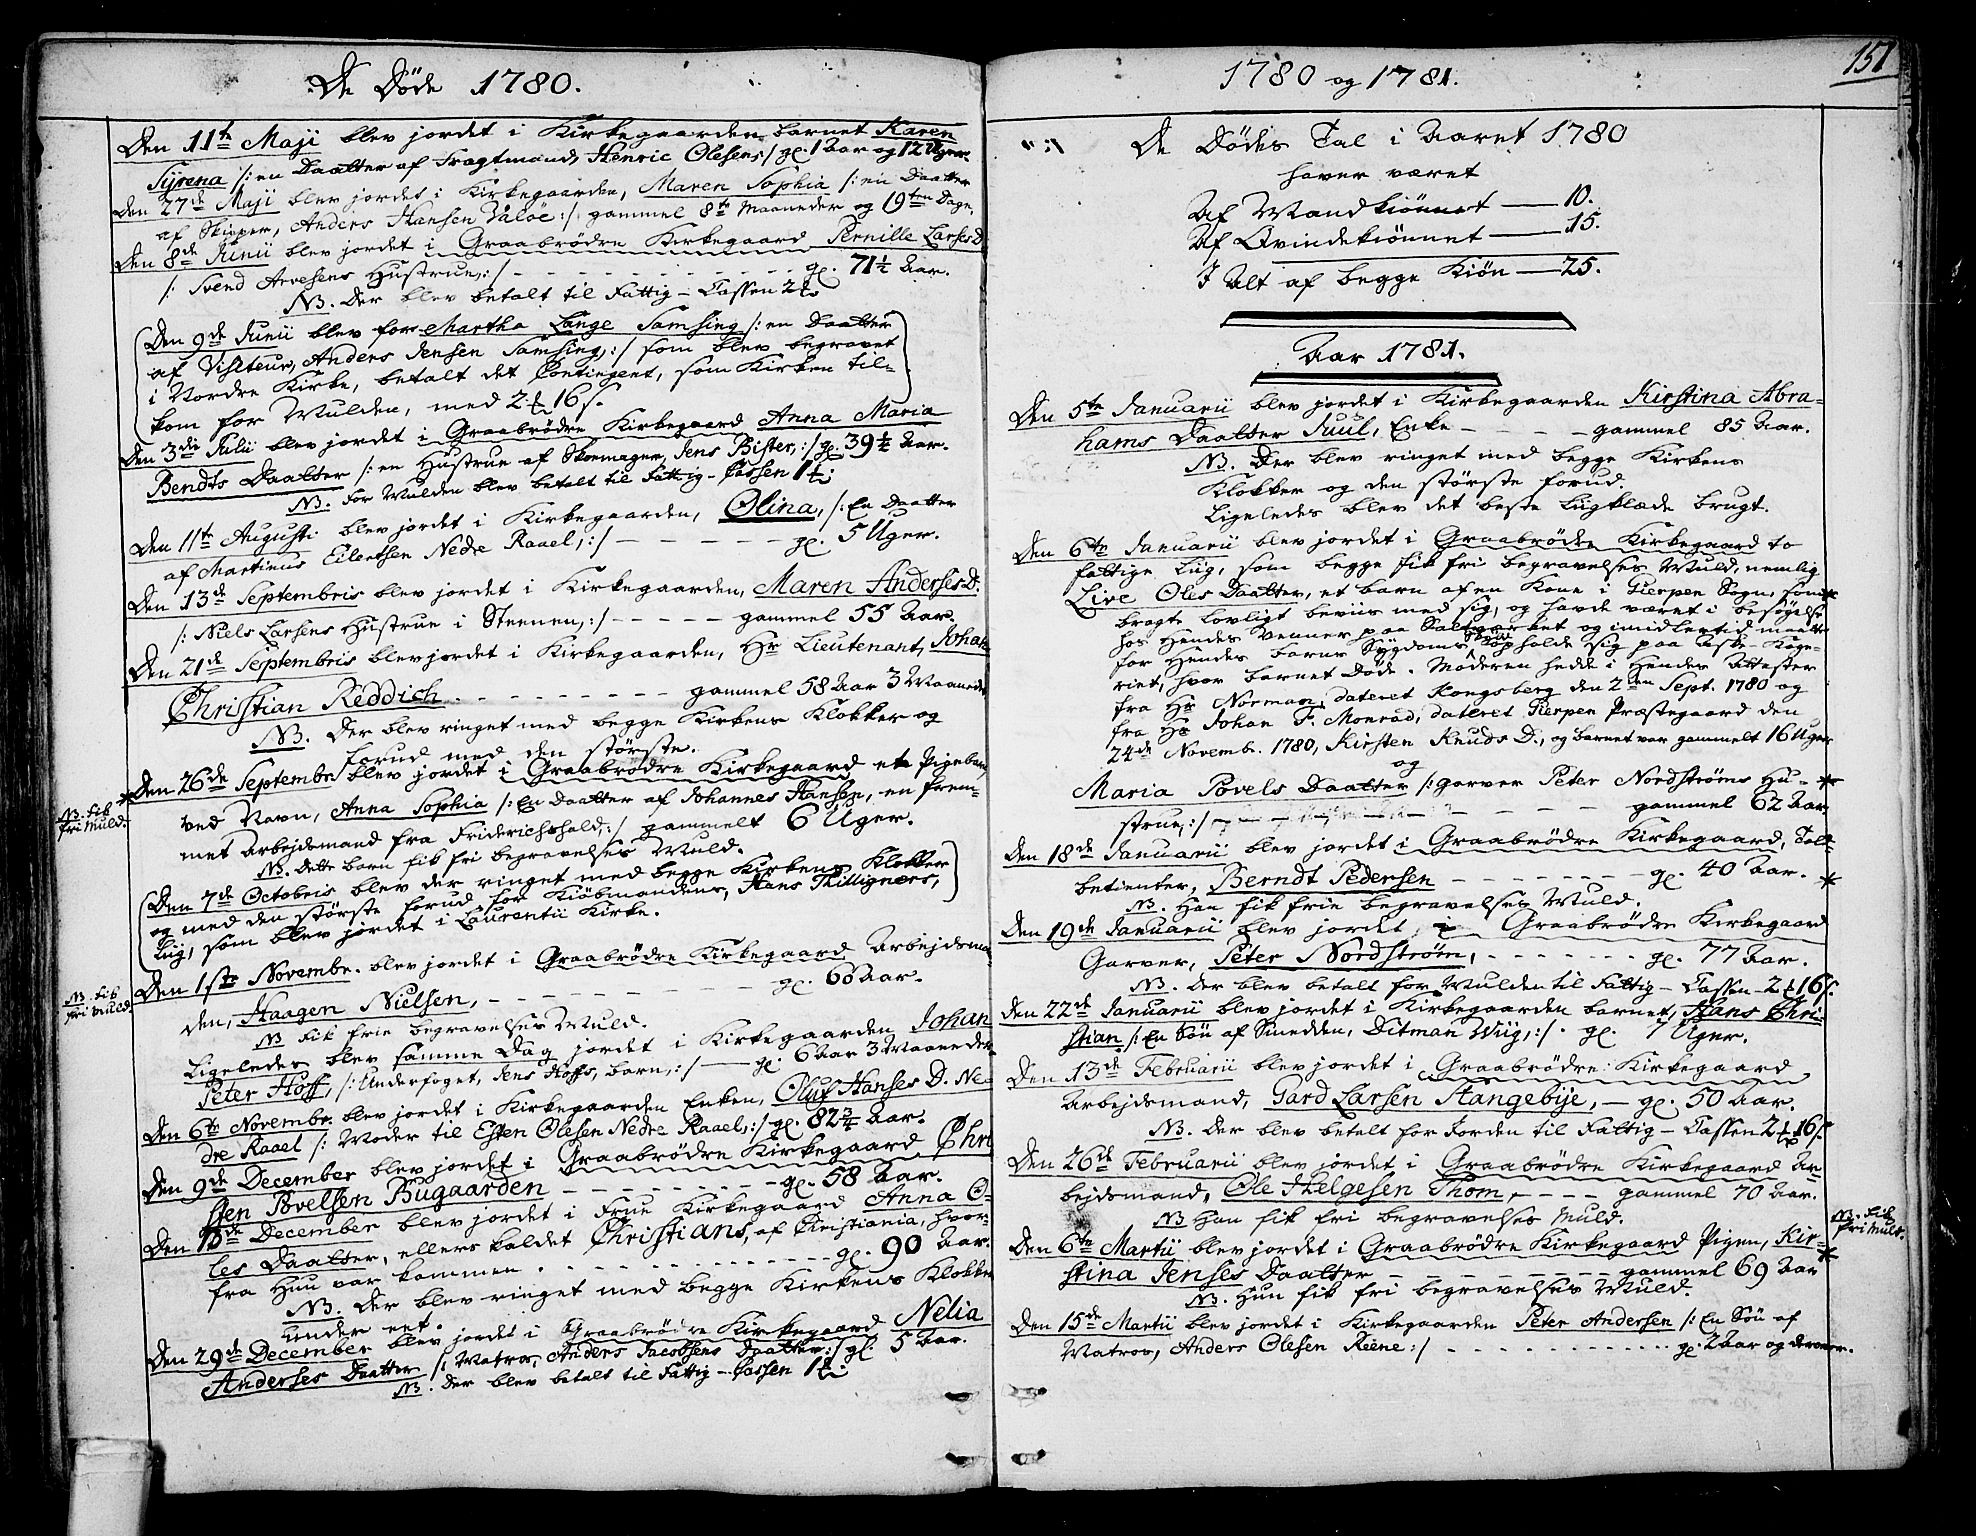 De Döde 1780.
Den 11te Maji blev jordet i Kirkegaarden barnet Karen
Syrena /: en Daatter af Fragtmand, Henric Olesens :/ gl. 1 Aar og 12 Uger.
Den 27de Maji blev jordet i Kirkegaarden, Maren Sophia /: en Daatter
af Skipper, Anders Hansen Valöe :/ gammel 8te Maaneder og 19ten Dage.
Den 8de Junii blev jordet i Graabrödre Kirkegaard Pernille Larses D.
/: Svend Arvesens Hustrue, :/ gl. 71 1/2 Aar.
NB. Der blev betalt til Fattig-Cassen 2
Den 9de Junii blev for Martha Lange Samsing /: en Daatter
af Visiteur, Anders Jensen Samsing, :/ som blev begravet
i Nordre Kirke, betalt det Contingent, som Kirken til-
kom for Mulden, med 2 16 s.
Den 3die Julii blev jordet i Graabrödre Kirkegaard Anna Maria
Bendts Daatter /: en Hustrue af Skoemager, Jens Bister, :/ gl. 39 1/2 Aar.
NB. For Mulden blev betalt til Fattig-Cassen 1
Den 11te Augusti blev jordet i Kirkegaarden, Olina, /: En Daatter
af Martinus Eilertsen Nedre Raael, :/ gl. 5 Uger.
Den 13de Septembris blev jordet i Kirkegaarden, Maren Anderses D.
/: Niels Larsens Hustrue i Steenen, :/ gammel 55 Aar.
Den 21de Septembris blev jordet i Kirkegaarden, Hr Lieutenant, Johan
Christian Reddich gammel 58 Aar 3 Maaneder
NB. Der blev ringet med begge Kirkens Klokker og
forud med den störste.
Den 26de Septembr. blev jordet i Graabrödre Kirkegaard et Pigebarn
NB. fik
fri Muld.
ved Navn, Anna Sophia /: En Daatter af Johannes Hansen, en frem-
met Arbejdsmand fra Friderichshald, :/ gammelt 6 Uger.
NB. Dette barn fik fri begravelses Muld.
Den 7de Octobris blev der ringet med begge Kirkens Klokker
og med den störste forud for Kiöbmandens, Hans Thilligners,
Liig, som blev jordet i Laurentii Kirke.
Den 1ste Novembr. blev jordet i Graabrödre Kirkegaard Arbejdsman-
NB. fik
fri Muld.
den, Haagen Nielsen, gl. 60 Aar.
NB fik frie begravelses Muld.
Ligeledes blev samme Dag jordet i Kirkegaarden Johan
Peter Hoff, /: Underfoget, Jens Hoffs, barn, :/ gl. 6 Aar 3 Maaneder
Den 6te Novembr. blev jordet i Kirkegaarden Enken, Oluf Hanses D. Ne-
dre Raael /: Moder til Esten Olesen Nedre Raael, :/ gl. 82 3/4 Aar.
Den 9de December blev jordet i Graabrödre Kirkegaard Chri
sten Povelsen Bugaarden gl. 58 Aar.
Den 16de December blev jordet i Frue Kirkegaard Anna O-
les Daatter, ellers kaldet Christians, af Christiania, hvor-
fra Hun var kommen gl. 90 Aar.
NB. Der blev ringet med begge Kirkens Klokker
under eet.
Den 29de December blev jordet i Graabrödre Kirkegaard Nelia
Anderses Daatter /: Matros, Anders Jacobsens Daatter :/ gl. 5 Aar.
NB. Der blev betalt til Fattig-Cassen 1
1780 og 1781.
151
De Dödes Tal i Aaret 1780
haver været
Af Mandkiönnet 10.
Af Qvindekiönnet 15.
I Alt af begge Kiön 25.
Aar 1781.
Den 5te Januarii blev jordet i Kirkegaarden Kirstina Abra-
hams Daatter Juul, Enke gammel 85 Aar.
NB. Der blev ringet med begge Kirkens
Klokker og den störste forud.
Ligeledes blev det beste Liigklæde brugt.
Den 6te Januarii blev jordet i Graabrödre Kirkegaard to
fattige Liig, som begge fik fri begravelses Muld, nemlig
Live Oles Daatter, et barn af en Kone i Gierpen Sogn, som
bragte lovligt beviis med sig, og havde været i besögelse
hos Hendes Venner paa Saltværket og imidlertid maatte
for Hendes barns Sygdoms Skyld opholde sig paa Aske-Koge-
riet, hvor barnet Döde. Moderen hedde i Hendes Attester
fra Hr Norman, dateret Kongsberg den 2den Sept. 1780 og
fra Hr Johan F. Monrad, dateret Gierpen Præstegaard den
24de Novembr. 1780, Kirsten Knuds D., og barnet var gammelt 16 Uger
og
Maria Povels Daatter /: garver Peter Nordströms Hu-
strue, :/ gammel 62 Aar,
Den 18de Januarii blev jordet i Graabrödre Kirkegaard, Told-
betienter, Berndt Pedersen gl. 40 Aar.
NB. Han fik frie begravelses Muld.
Den 19de Januarii blev jordet i Graabrödre Kirkegaard
Garver, Peter Nordström, gl. 77 Aar.
NB. Der blev betalt for Mulden til Fattig-Cassen 2 16 s.
Den 22de Januarii blev jordet i Kirkegaarden barnet, Hans Chri-
stian /: En Sön af Smedden, Ditman Wiig, :/ gl. 7 Uger.
Den 13de Februarii blev jordet i Graabrödre Kirkegaard
Arbejdsmand, Gard Larsen Stangebye, gl. 50 Aar.
NB. Der blev betalt for Jorden til Fattig-Cassen 2 16 s.
Den 26de Februarii blev jordet i Graabrödre Kirkegaard Ar
bejdsmand, Ole Helgesen Thom, gammel 70 Aar.
NB Han fik fri begravelses Muld.
NB. fik
fri Muld.
Den 6te Martii blev jordet i Graabrödre Kirkegaard Pigen, Kir-
stina Jenses Daatter gammel 69 Aar
NB. Hun fik fri begravelses Muld.
Den 15de Martii blev jordet i Kirkegaarden Peter Andersen /: En Sön af
Matros, Anders Olesen Reene :/ gl. 2 Aar og derover.